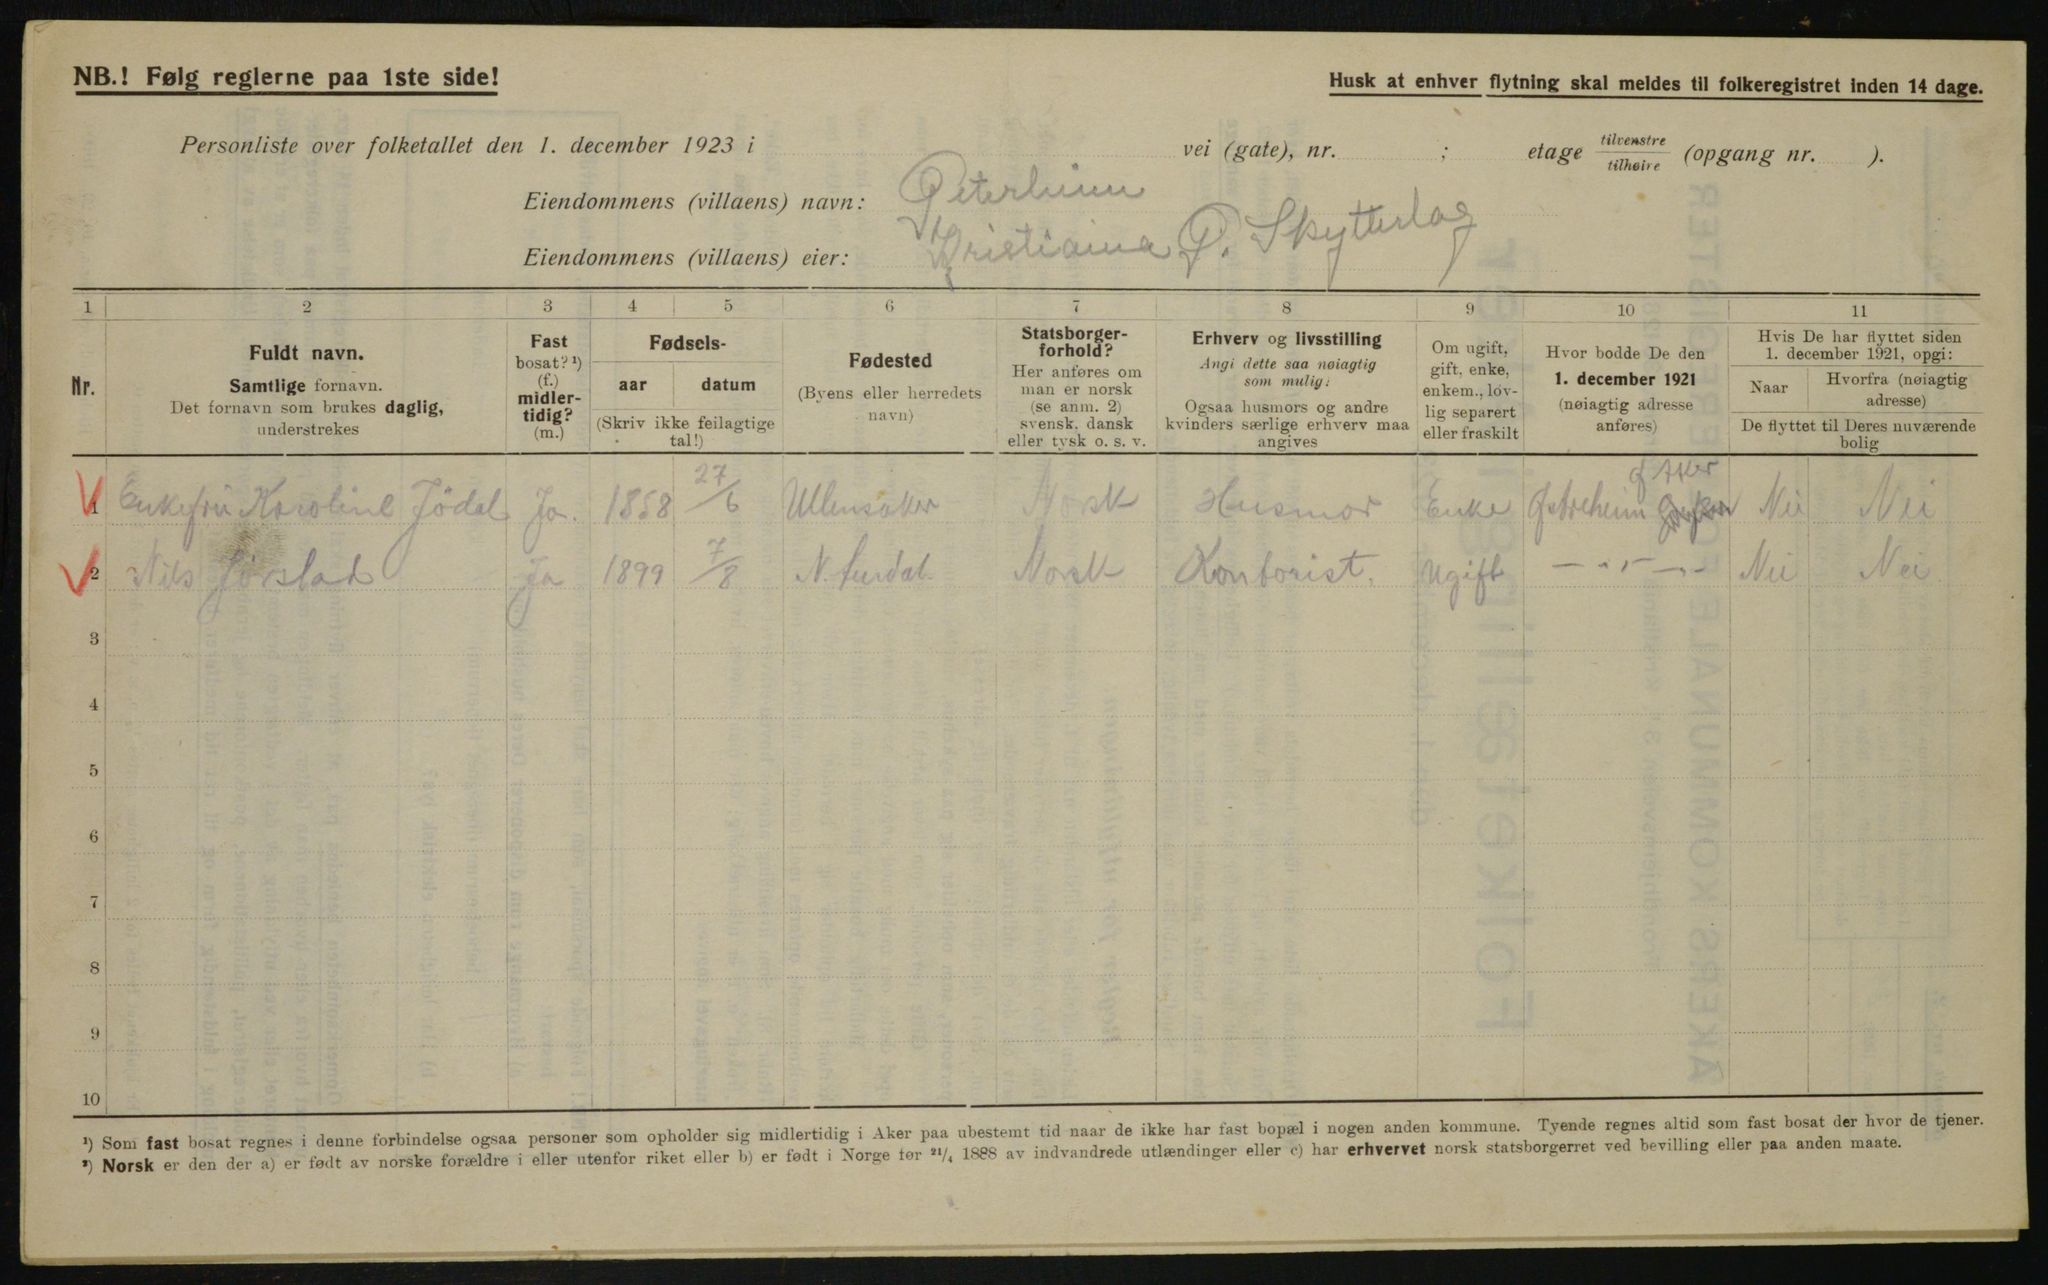 NB.! Følg reglerne paa 1ste side!
Husk at enhver flytning skal meldes til folkeregistret inden 14 dage.
Personliste over folketallet den 1. december 1923 i vei (gate), nr. ; etage tilvenstre/tilhøire (opgang nr. ).
Eiendommens (villaens) navn:
Eiendommens (villaens) eier: Kristiania P. Skytterlag
1 2 3 4 5 6 7 8 9 10 11
Nr.
Fuldt navn.
Samtlige fornavn.
Det fornavn som brukes daglig,
understrekes
Fast
bosat? ¹)
(f.)
midler-
tidig?
(m.)
Fødsels-
aar datum
(Skriv ikke feilagtige
tal!)
Fødested
(Byens eller herredets
navn)
Statsborger-
forhold?
Her anføres om
man er norsk
(se anm. 2)
svensk, dansk
eller tysk o. s. v.
Erhverv og livsstilling
Angi dette saa nøiagtig
som mulig:
Ogsaa husmors og andre
kvinders særlige erhverv maa
angives
Om ugift,
gift, enke,
enkem., lov-
lig separert
eller fraskilt
Hvor bodde De den
1. december 1921
(nøiagtig adresse
anføres)
Hvis De har flyttet siden
1. december 1921, opgi:
Naar Hvorfra (nøiagtig
adresse)
De flyttet til Deres nuværende
bolig
1 Enkefru Karoline Jödal Ja. 1858 27/6 Ullensaker Norsk Husmor Enke Østreheim Aker Nei Nei
2 Nils Ja 1899 7/8 Norsk Kontorist. Ugift — - " - — - Nei Nei
3
4
5
6
7
8
9
10
¹) Som fast bosat regnes i denne forbindelse ogsaa personer som opholder sig midlertidig i Aker paa ubestemt tid naar de ikke har fast bopæl i nogen anden kommune. Tyende regnes altid som fast bosat der hvor de tjener.
²) Norsk er den der a) er født av norske forældre i eller utenfor riket eller b) er født i Norge før 21/4 1888 av indvandrede utlændinger eller c) har erhvervet norsk statsborgerret ved bevilling eller paa anden maate.